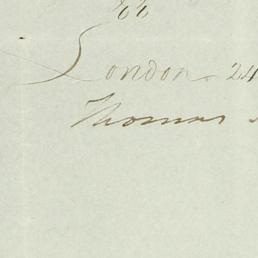 London 24
Thomas